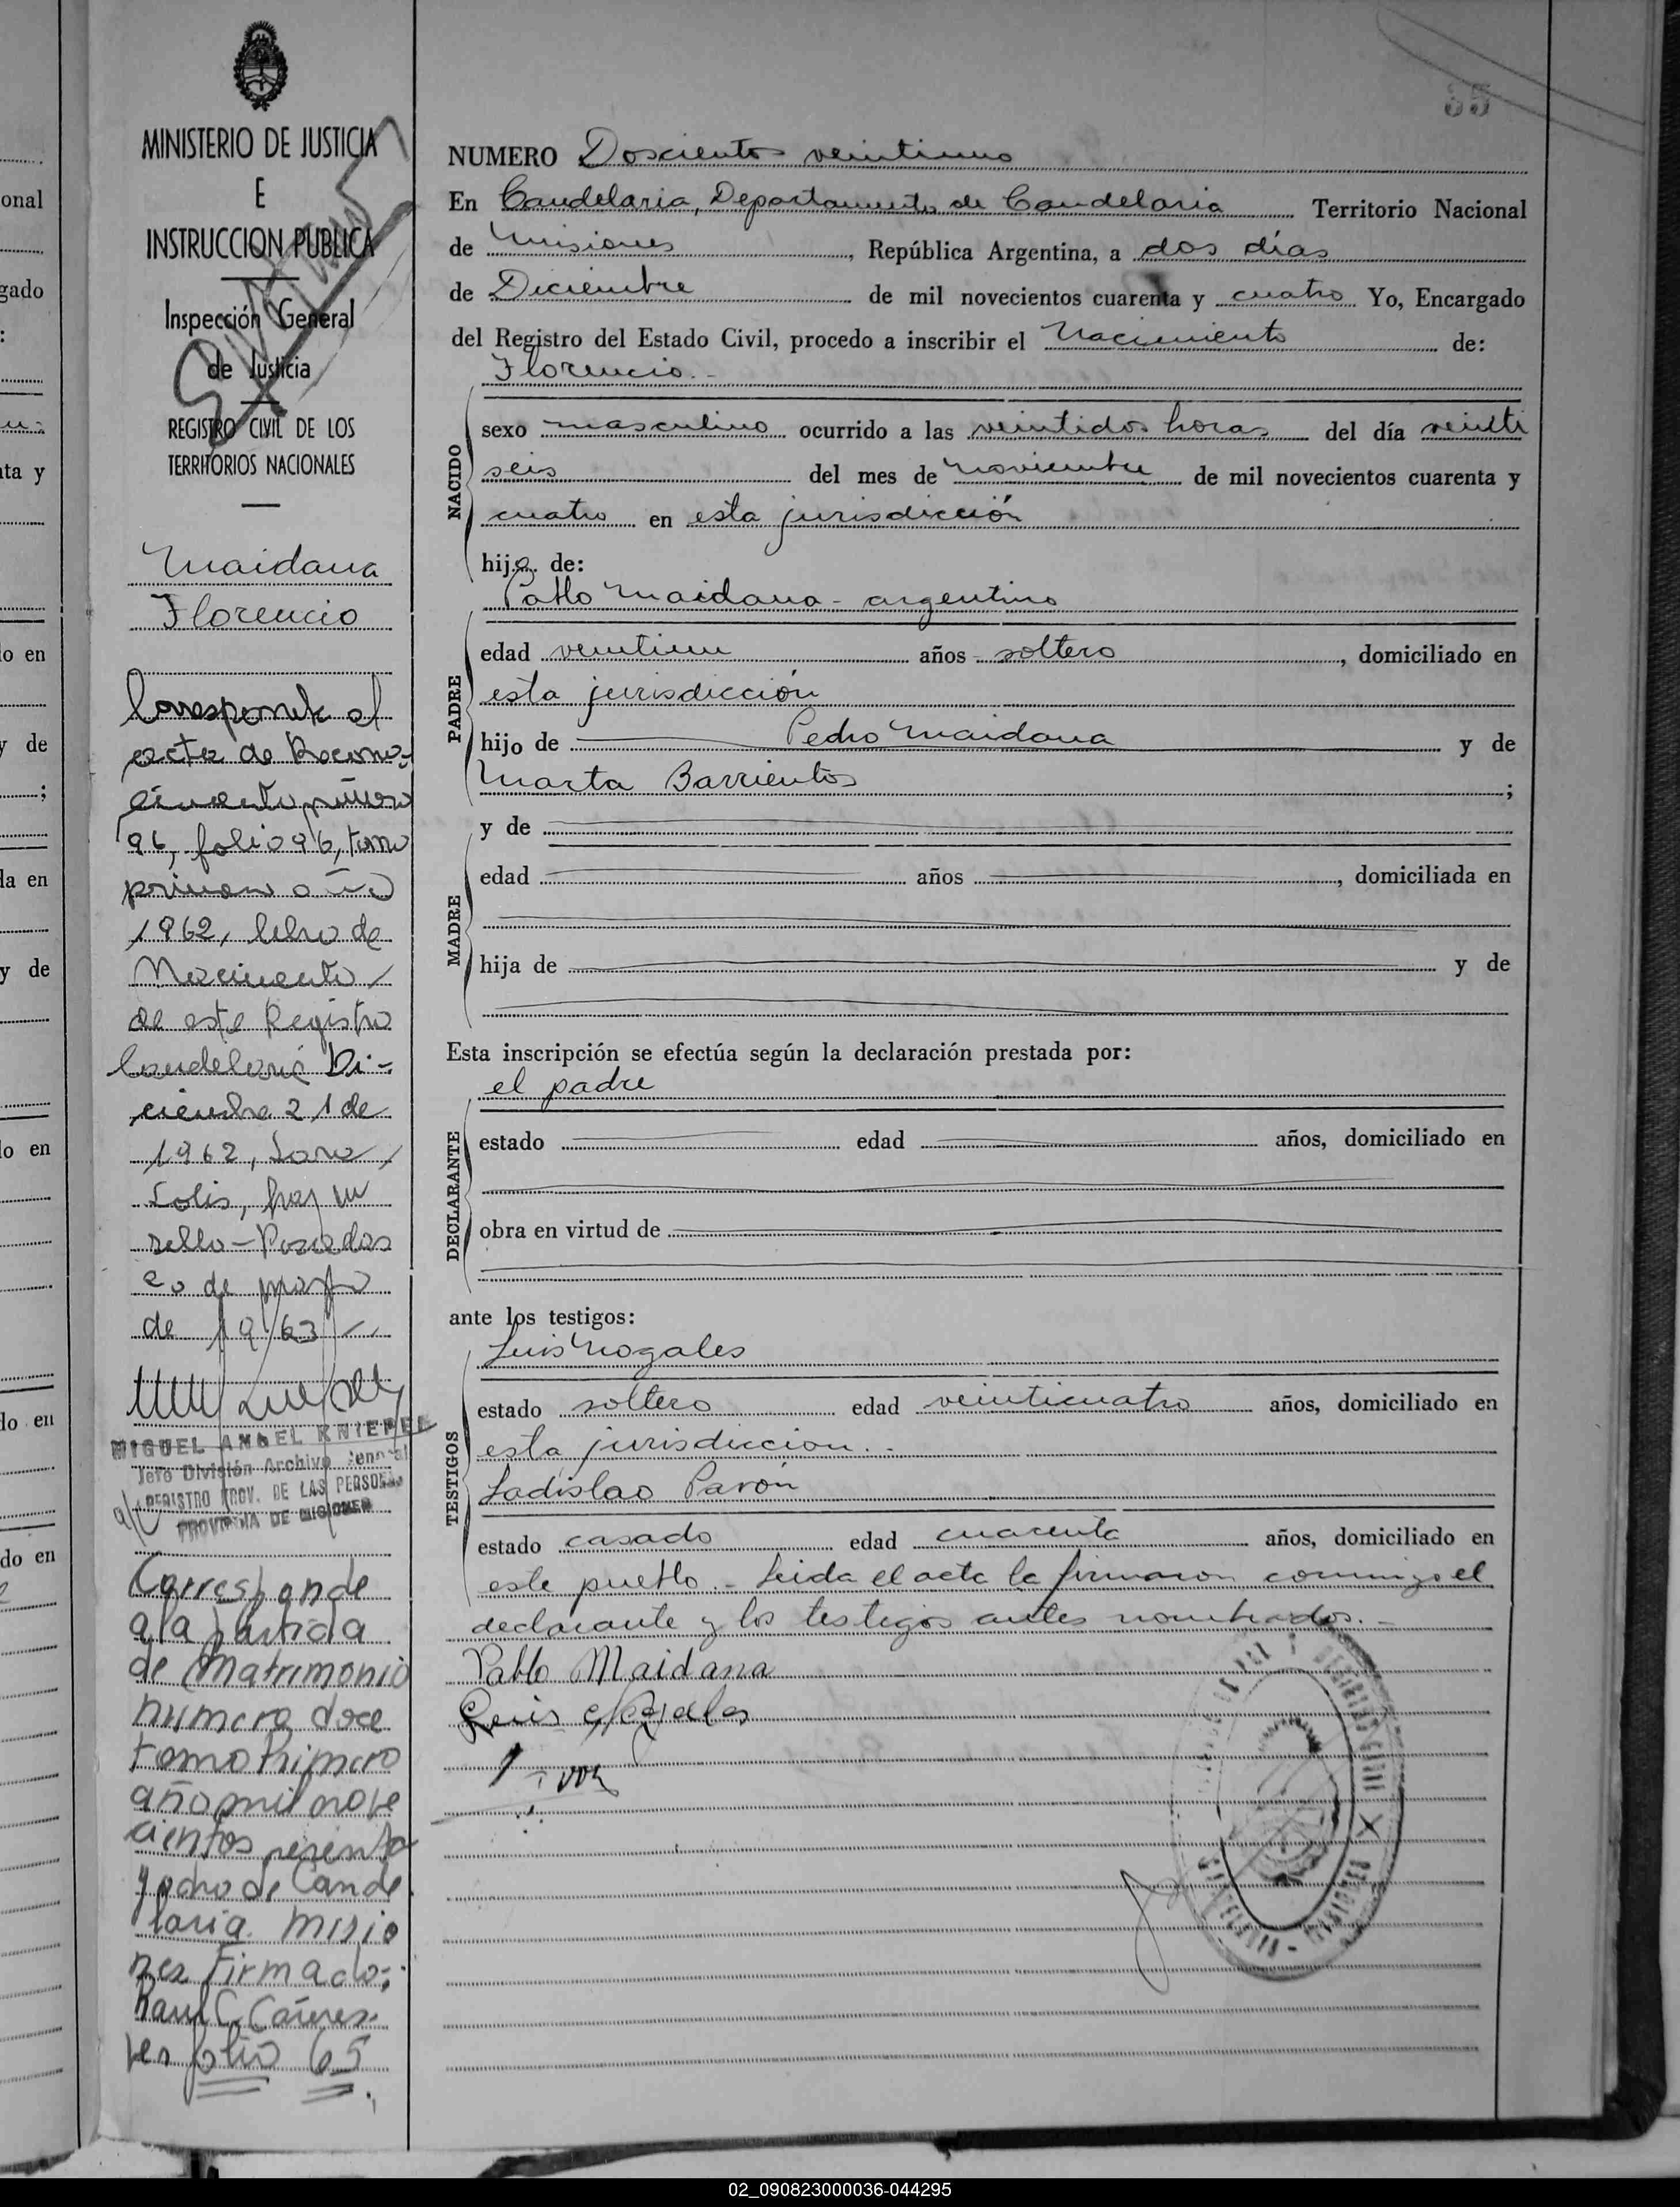 35
MINISTERIO DE JUSTICIA
E
INSTRUCCION PUBLICA
Inspección General
de Justicia
REGISTRO CIVIL DE LOS
TERRITORIOS NACIONALES
Maidana
Florencio
Corresponde al
acta de Recono-
cimiento número
96, folio 96, tomo
primero año
1962, libro de
Nacimiento
de este Registro
Candelaria Di-
ciembre 21 de
1962,
Solis, hay un
sello - Posadas
20 de
de 1963
MIGUEL ANGEL KNIEPER
Jefe División Archivo General
REGISTRO PROV. DE LAS PERSONAS
PROVINCIA DE MISIONES
Corresponde
a la partida
de Matrimonio
numero doce
tomo Primero
año mil nove
cientos sesenta
y ocho de Cande
laria. Misio
nes Firmado:
Raul C.
folio 65
NUMERO Doscientos veintiuno
En Candelaria, Departamento de Candelaria Territorio Nacional
de Misiones, República Argentina, a dos días
de Diciembre de mil novecientos cuarenta y cuatro Yo, Encargado
del Registro del Estado Civil, procedo a inscribir el Nacimiento de:
Florencio.-
NACIDO
sexo masculino ocurrido a las veintidos horas del día veinti
seis del mes de noviembre de mil novecientos cuarenta y
cuatro en esta jurisdicción
hijo de:
PADRE
Pablo Maidana - argentino
edad veintiun años soltero, domiciliado en
esta jurisdicción
hijo de Pedro Maidana y de
Marta Barrientos ;
MADRE
y de
edad años , domiciliada en
hija de y de
Esta inscripción se efectúa según la declaración prestada por:
el padre
DECLARANTE
estado edad años, domiciliado en
obra en virtud de
ante los testigos:
TESTIGOS
Luis Nogales
estado soltero edad veinticuatro años, domiciliado en
esta jurisdiccion.-
Ladislao Pavón
estado casado edad cuarenta años, domiciliado en
este pueblo - Leida el acta la firmaron conmigo el
declarante y los testigos antes nombrados.-
Pablo Maidana
Luis Nogales
02_090823000036-044295